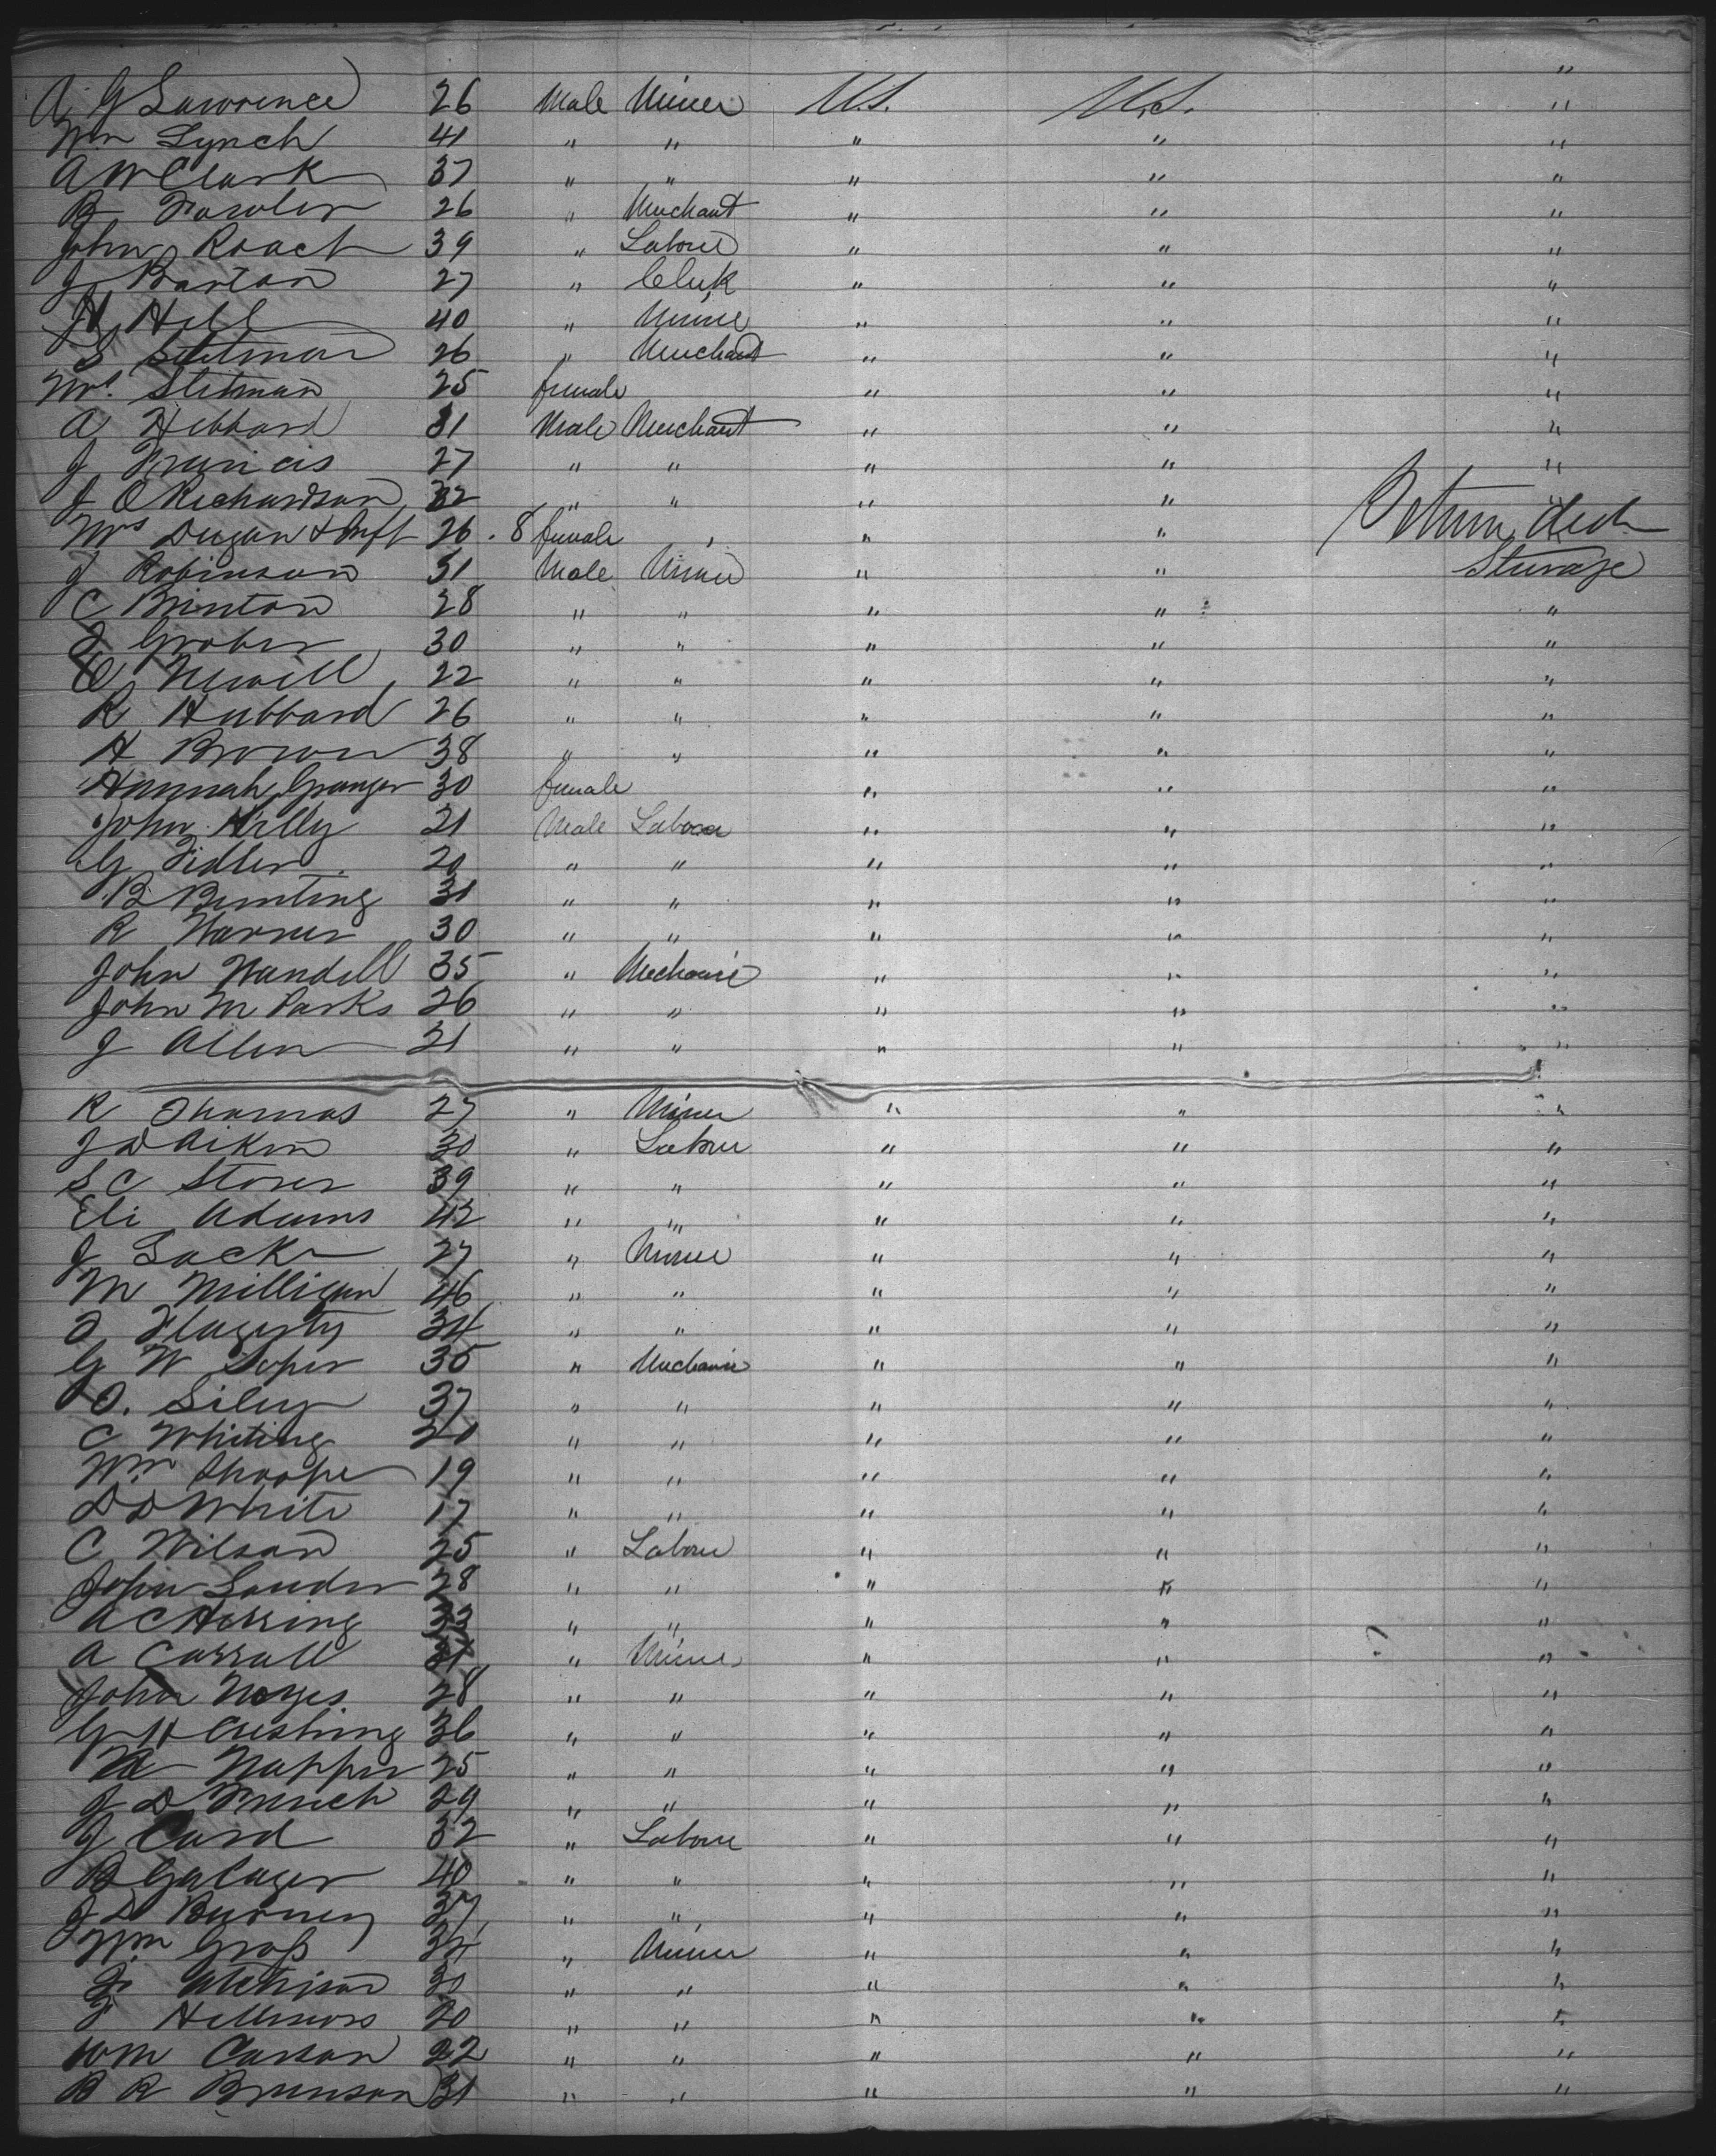 "
A G Lawrence 26 Male Miner U.S. U.S. "
Wm Lynch 41 " " " " "
A W Clark 37 " " " " "
B Fowler 26 " Merchant " " "
John Roach 39 " Laborer " " "
J Barton 27 " Clerk " " "
H Hill 40 " Miner " " "
S 26 " Merchant " " "
Mrs. Sletman 25 female " " "
A Hibbard 31 Male Merchant " " "
J Francis 27 " " " " "
J O Richardson 32 " " " " "
Mrs Dugan & Inft 26 . 8 female " " Return deck
J Robinson 31 Male Miner " " Steerage
C Brinton 28 " " " " "
J Grober 30 " " " " "
Newell 22 " " " " "
R Hubbard 26 " " " " "
H Brown 38 " " " " "
Hannah Granger 30 female " " "
John Kelly 21 Male Laborer " " "
G Fidler 20 " " " " "
B Bunting 31 " " " " "
R Warner 30 " " " " "
John Wandell 35 " Mechanic " " "
John M Parks 26 " " " " "
J Allen 21 " " " " "
R Thomas 27 " Miner " " "
J D Aiken 30 " Laborer " " "
S C Storer 39 " " " " "
Eli Adams 42 " " " " "
J Lock 27 " Miner " " "
M Milligan 46 " " " " "
J Flagerty 34 " " " " "
G W Soper 35 " Mechanic " " "
O. Siley 37 " " " " "
C Whiting 20 " " " " "
Wm Shoope 19 " " " " "
D D White 17 " " " " "
C Wilson 25 " Laborer " " "
John Lander 28 " " " " "
A C Herring 33 " " " " "
A Carroll 31 " Miner " " "
John Noyes 28 " " " " "
G H Cushing 36 " " " " "
Napper 25 " " " " "
J D French 29 " " " " "
J Card 32 " Laborer " " "
B Galager 40 " " " " "
J D Burney 37 " " " " "
Wm Groß 34 " Miner " " "
J. Atchison 30 " " " " "
F 20 " " " " "
Wm Carson 22 " " " " "
B R Brunson 31 " " " " "